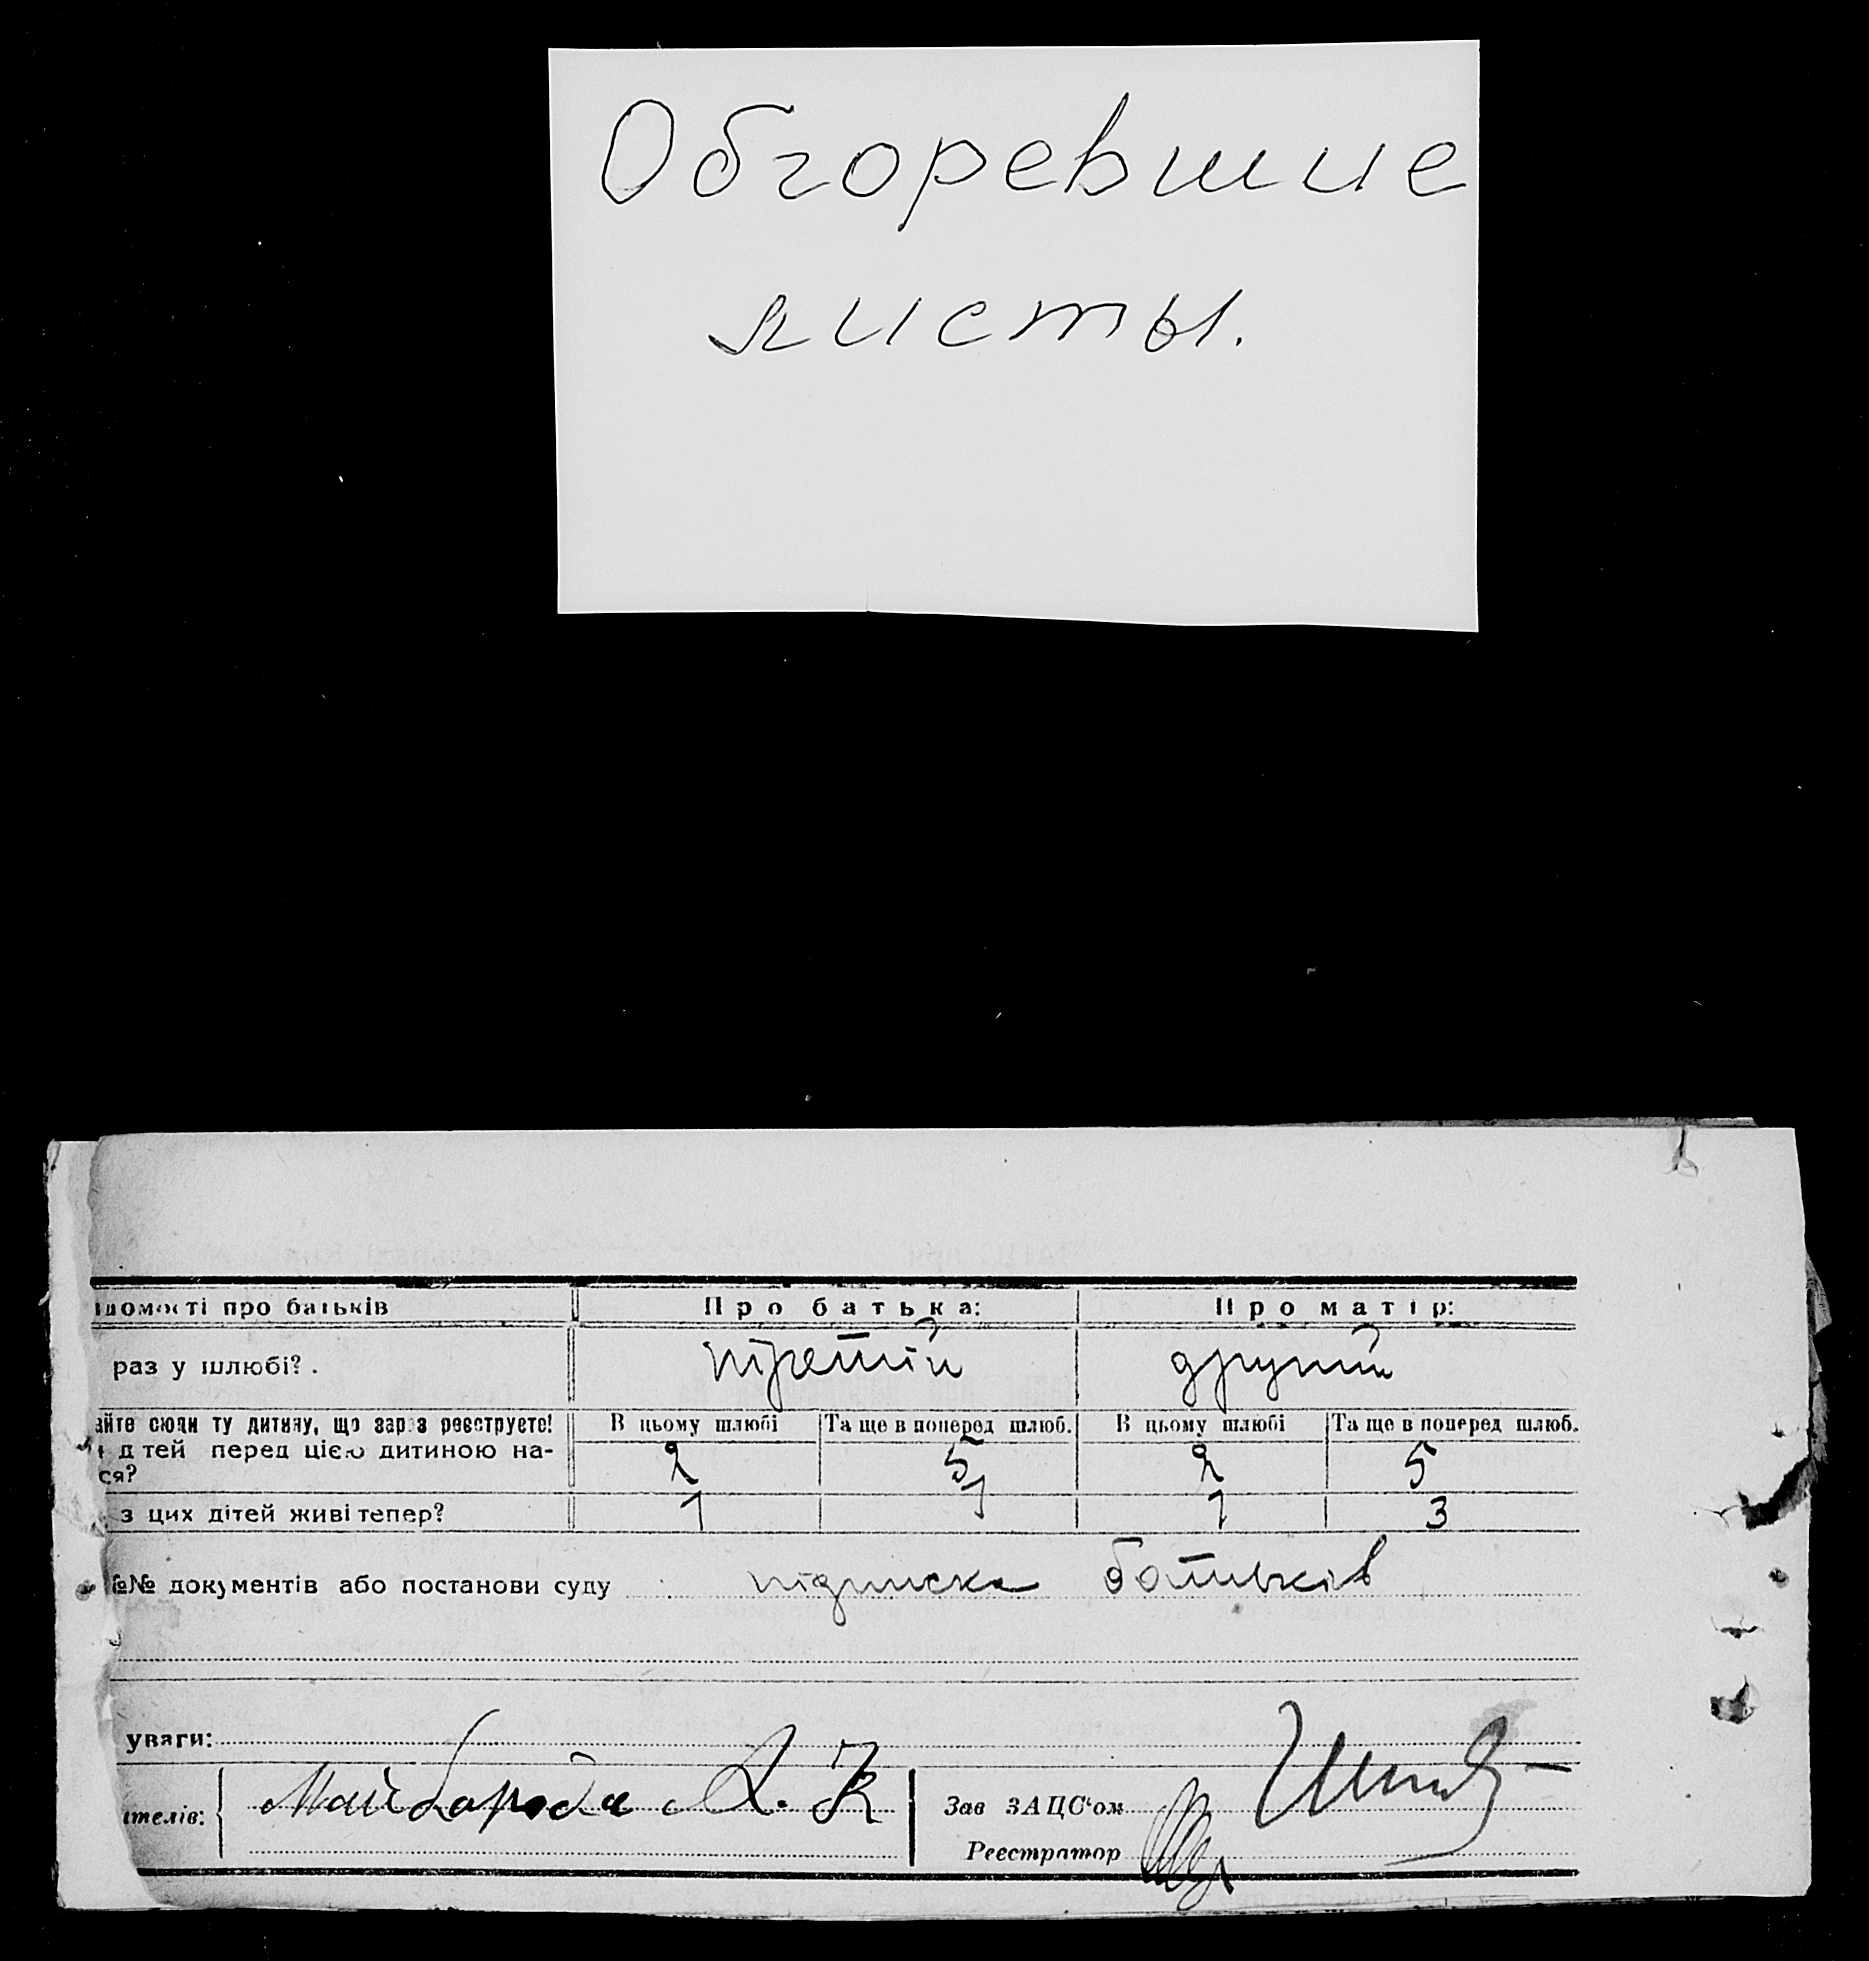 Обгоревшие
листы.
ідомості про батьків Про батька: Про матір:
раз у шлюбі? . третій другий
айте сюди ту дитину, що зараз реєструєте! В цьому шлюбі Та ще в поперед шлюб. В цьому шлюбі Та ще в поперед шлюб.
дтей перед цією дитиною на- 2 5 2 5
ся?
з цих дітей живі тепер? 1 1 1 3
№№ документів або постанови суду підписка батьків
уваги:
ителів: Майборода А. К Зав ЗАЦС'ом
Реєстратор